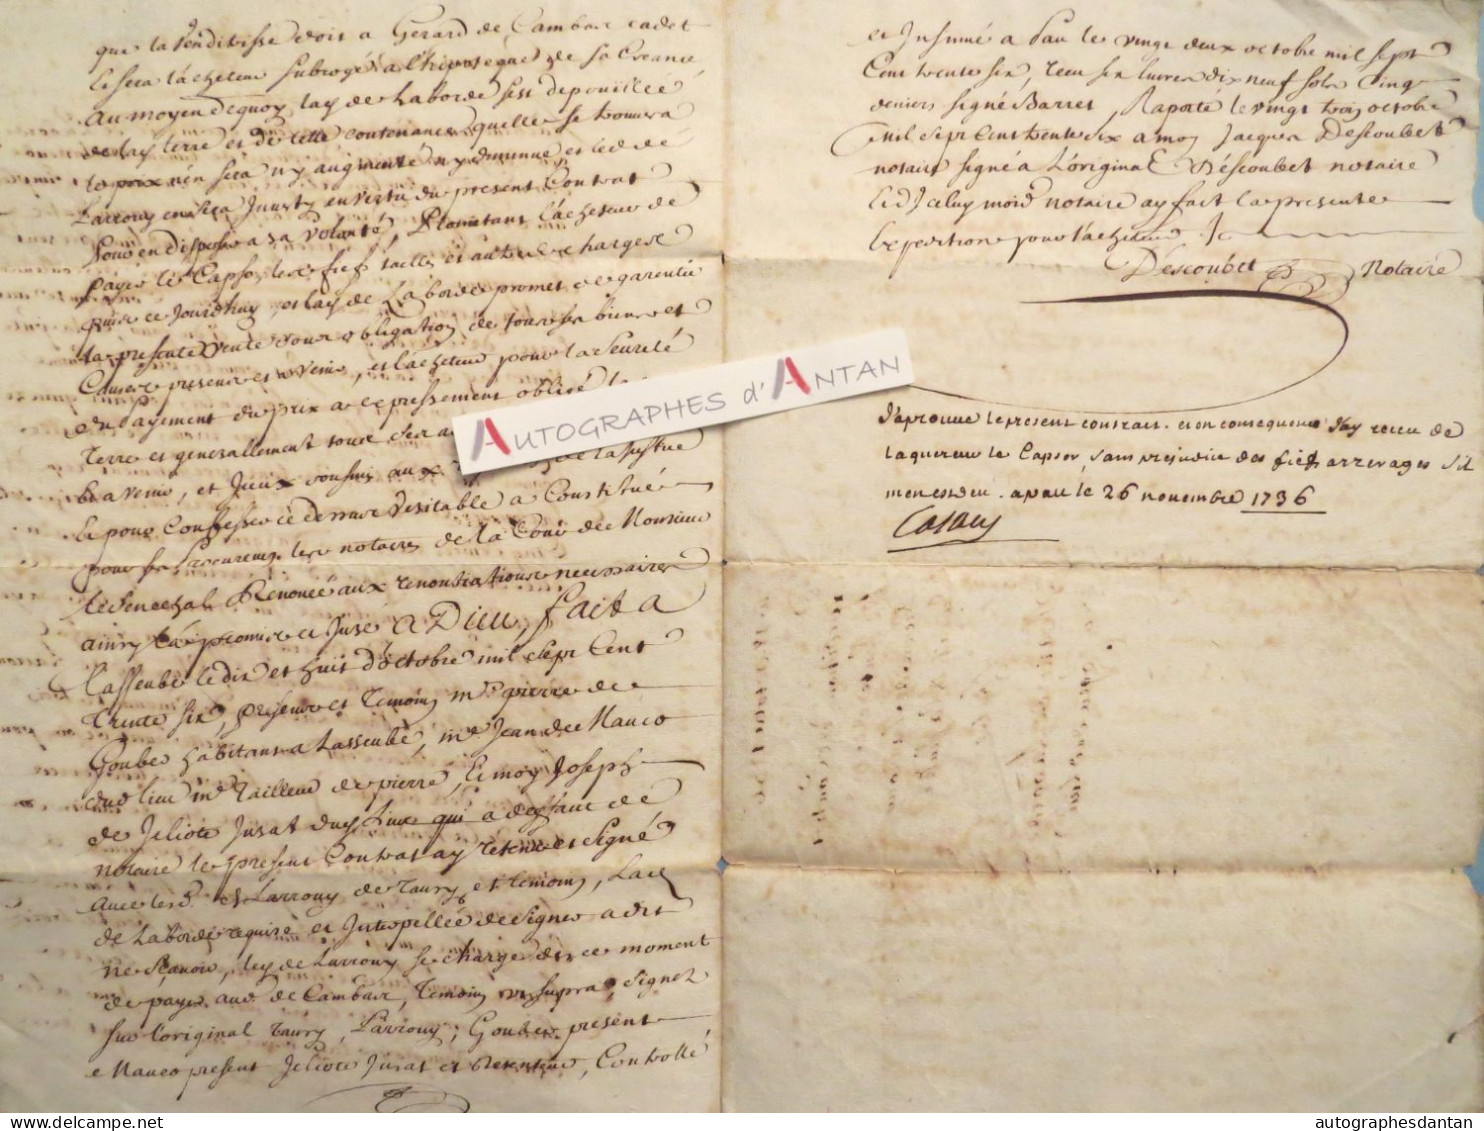 que la Venditrisse doit a Gerard de Cambarc cadet
le sera l'acheteur subrogé a l'hipoteque de sa Creance
au moyen dequoy lay de Laborde s'est depouillée
de lay terre et de telle contenance quelle se trouvera
le prix n'en sera n'y augmenté n'y diminué et led de
Larrouy en sera Jnvesty en vertu du present Contrat
Pour en disposer a sa volonté, Prometant l'acheteur de
payer le Capso, les fiefs tailles et autres charges
ce Jourdhuy, et lay de Laborde promet de garentir
la presente vente sous obligation de tous ses biens et
Causes presens et a venir, et l'acheteur pour la seureté
du payement du prix a expressement obligé la
Terre et generallement tous ses
a venir, et Jceux soumis aux de la Justice
pour Confesser ce dessus veritable a Constitué
pour ses Procureurs les notaires de la Cour de Monsieur
le Senechal Renoncé aux renontiations necessaires
ainsy l'a promis et Juré a Dieu, fait a
Lasseube le dix et huit d'octobre mil sept Cent
Trente six, presens et temoins me pierre de
Goubes habitans a Lasseube, me Jean de Nauco
dud lieu me Tailleur de pierre, et moy Joseph
de Jeliote Jurat dud lieu qui a deffaut de
notaire le present Contrat ay retenu et signé
avec les d. et Larrouy de Taury et temoins, Lad
de Laborde requise et Jnterpellée de signer a dit
ne sçavoir, ley de Larrouy se charge dez ce moment
de payer aud. de Cambarc, temoins ut supra, signez
sur l'original Taury, Larrouy, Goubes present
Nauco present Jeliote Jurat et Retenteur, Controllé
et Jnsinué a Pau le vingt deux octobre mil sept
Cent trente six, receu six livres dix neuf sols Cinq
deniers signé Barret, Raporté le vingt trois octobre
mil sept Cent trente six a moy Jacques Descoubet
notaire signé a L'original Descoubet notaire
led Jceluy moid. notaire ay fait la presente
Expedition pour l'acheteur
Descoubet Notaire
AUTOGRAPHES d'ANTAN
J'aprouve le present contrait. et en consequence J'ay receu de
laquereur le Capsoo, sans prejudice des fiefs arrerages s'il
m'en est deu. a pau le 26 novembre 1736
Casaus
autographesdantan